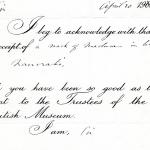 April 20 19
I beg to acknowledge with tha
receipt of a mask of Medusa in
you have been so good as t
nt to the Trustees of the
itish Museum.
I am,